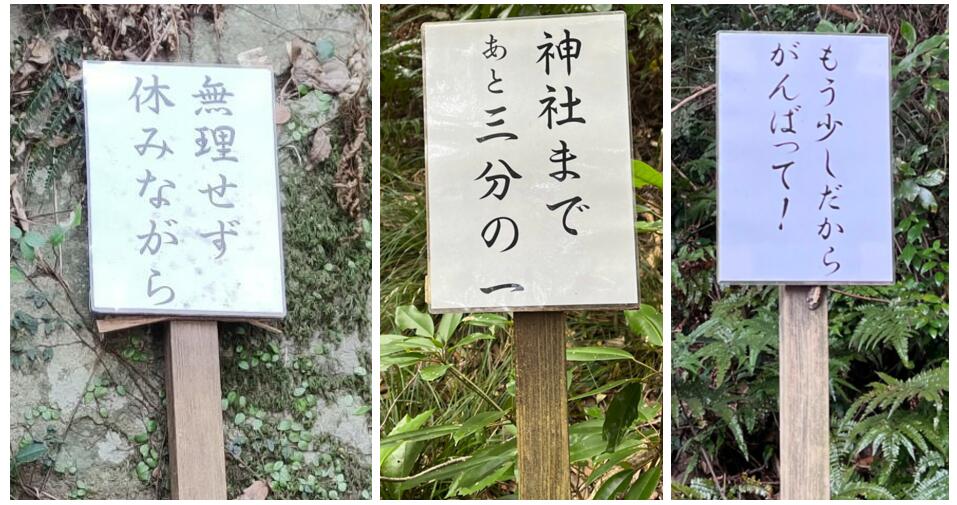 無理せず
休みながら
神社まで
あと三分の一
もう少しだから
がんばって!